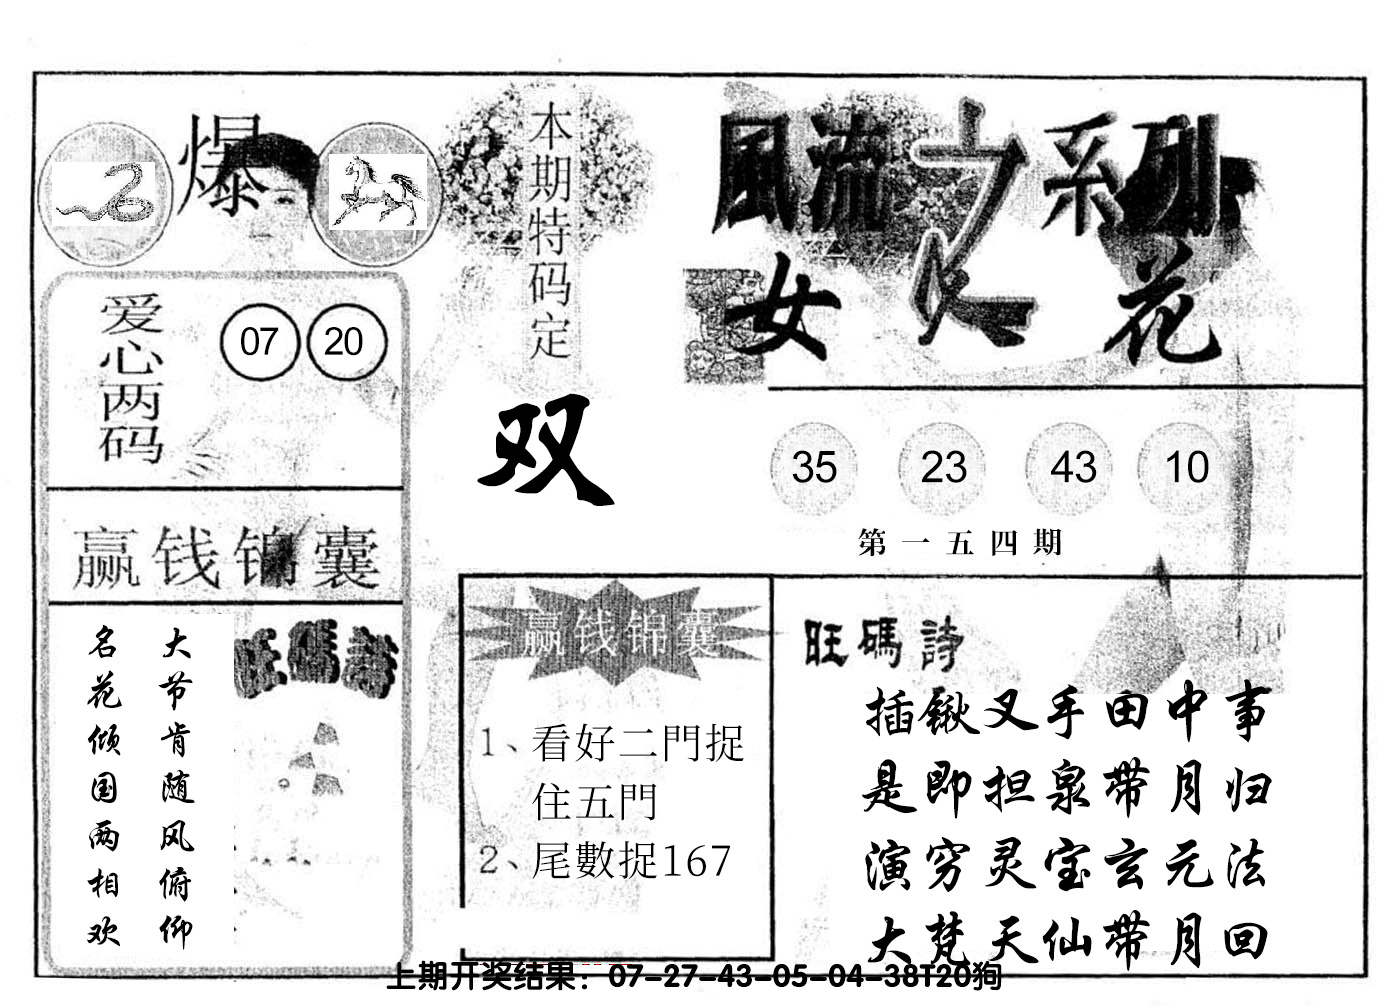 爆
爱心两码
07 20
赢钱锦囊
大节肯随风俯仰
名花倾国两相欢
旺碼詩
本期特码定
双
風流之系列
女人花
35 23 43 10
第一五四期
赢钱锦囊
1、看好二門捉
住五門
2、尾數捉167
旺碼詩
插锹叉手田中事
是即担泉带月归
演穷灵宝玄元法
大梵天仙带月回
上期开奖结果：07-27-43-05-04-38T20狗